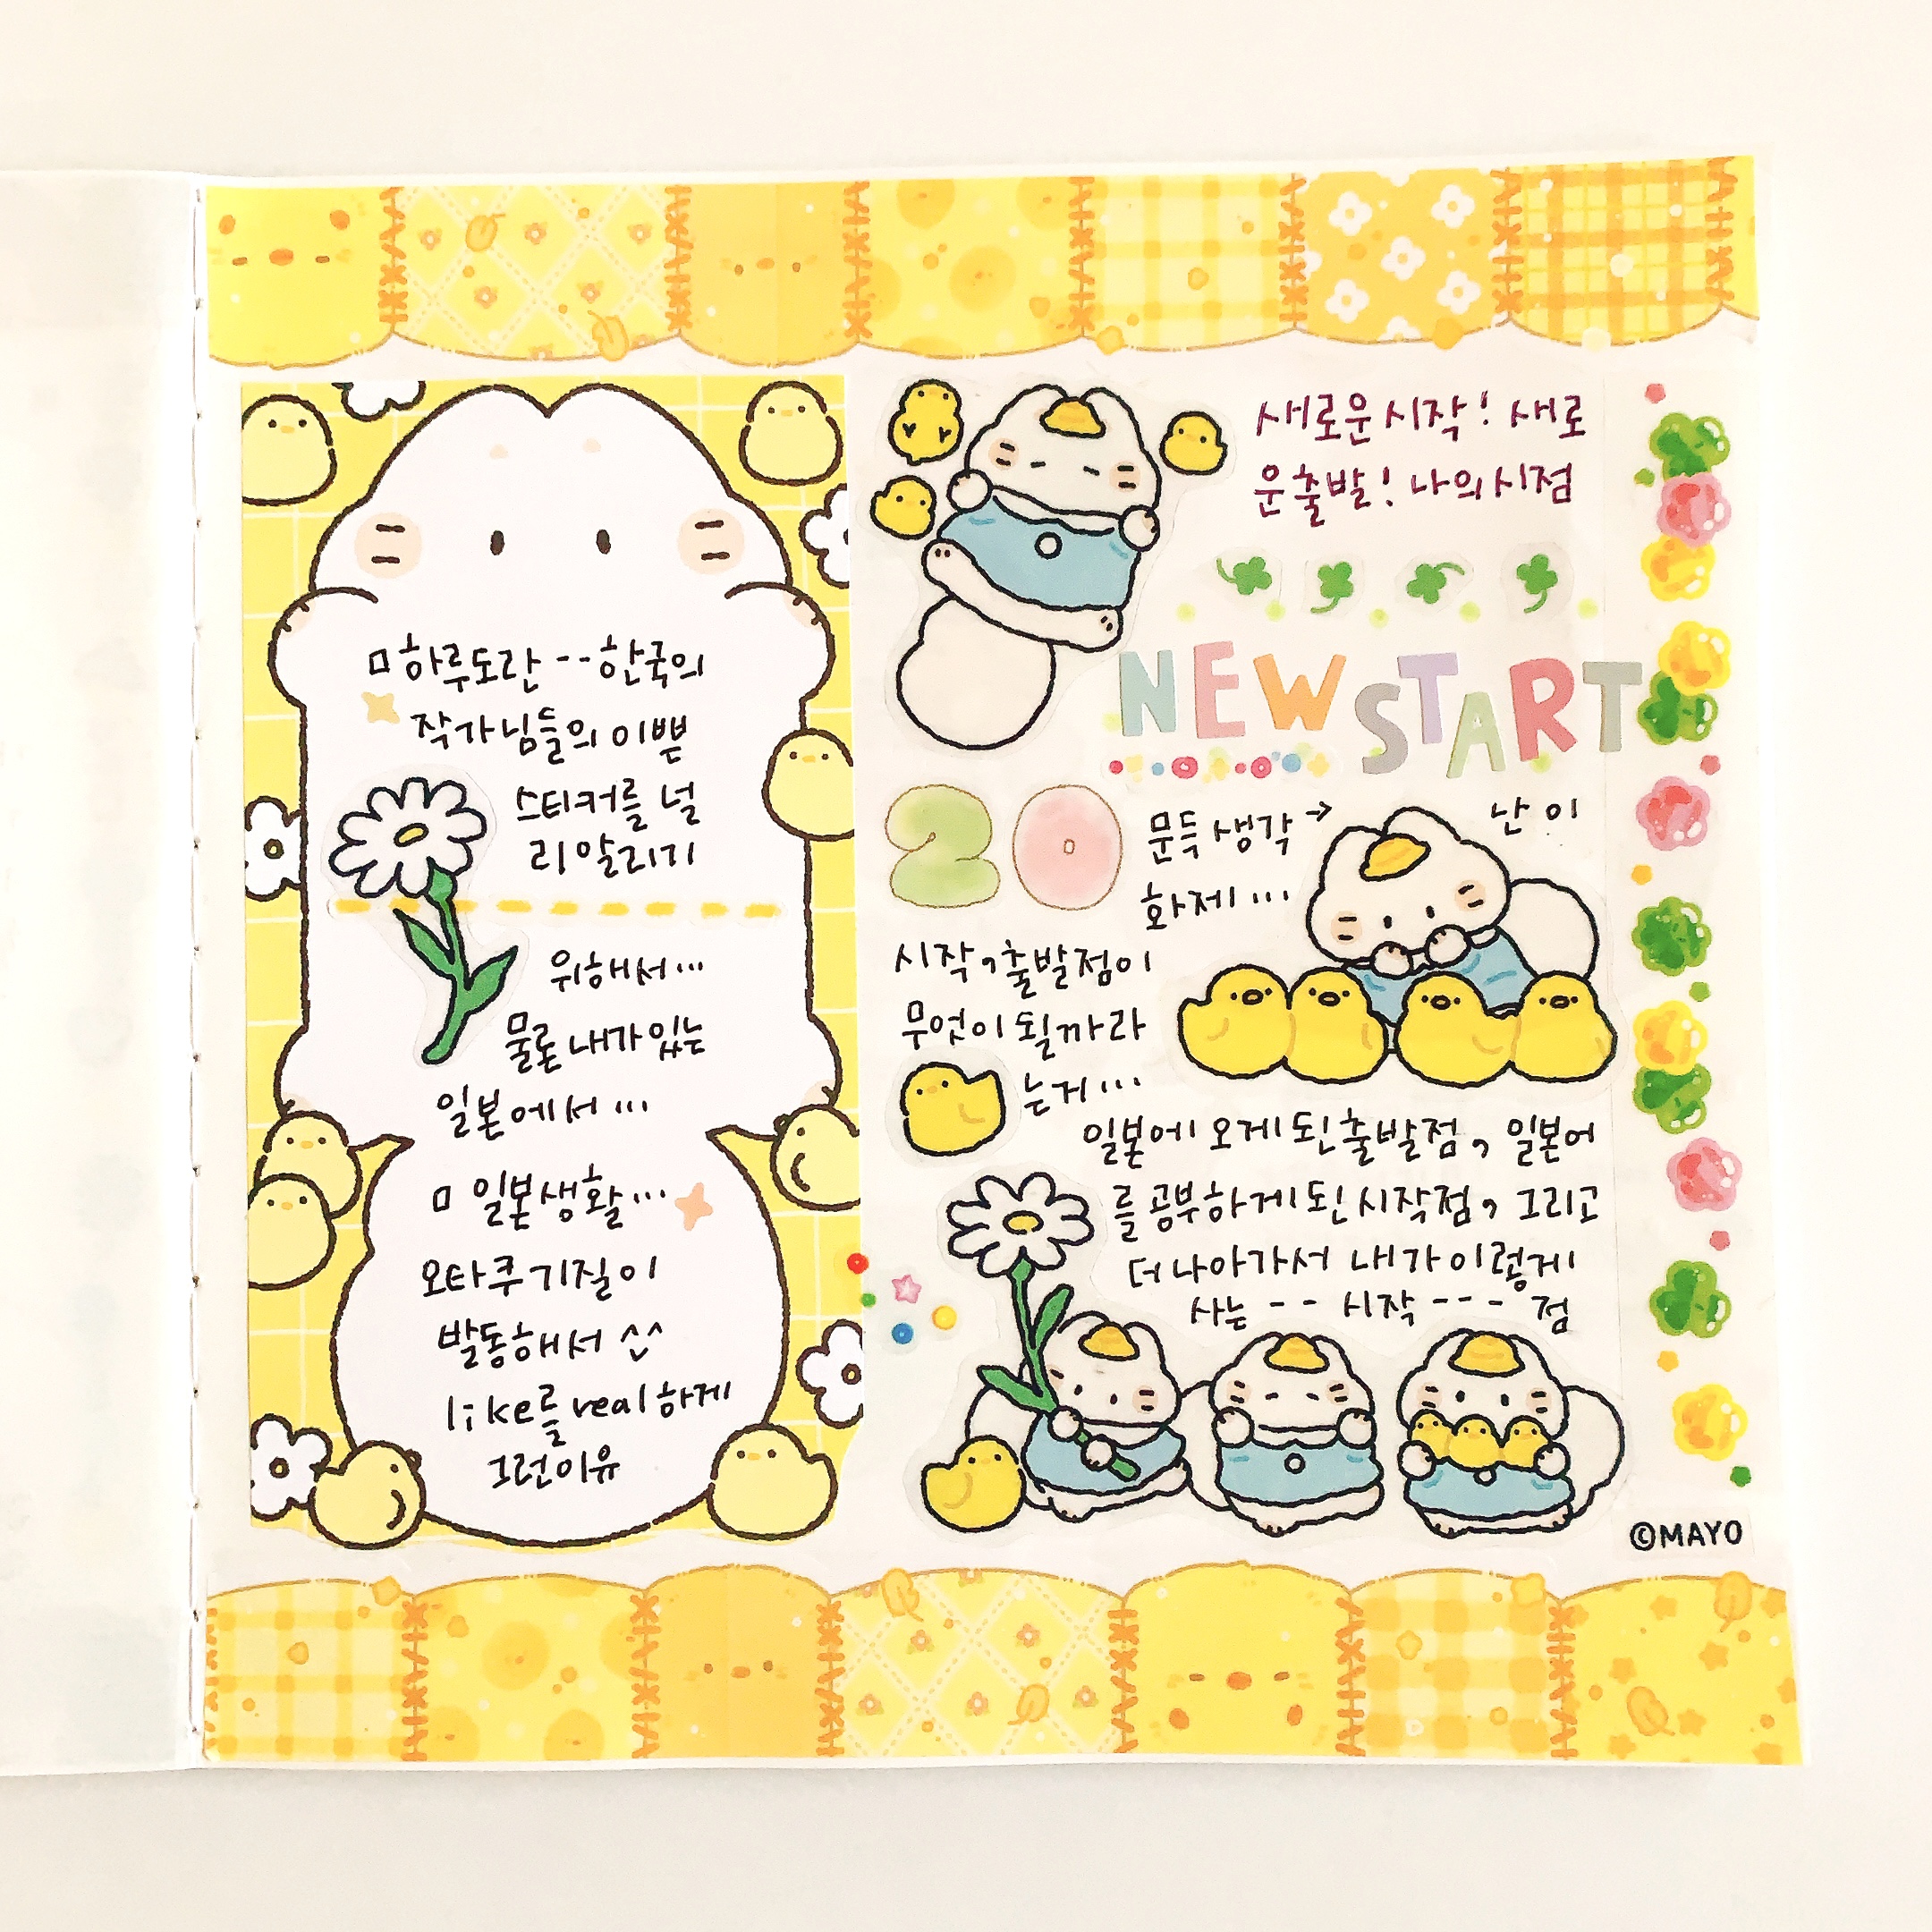 ㅁ하루도란--한국의
작가님들의 이쁜
스티커를 널
리 알리기
위해서...
물론 내가 있는
일본에서...
ㅁ 일본생활...
오타쿠 기질이
발동해서 ^^
like를 real하게
그런이유
새로운 시작! 새로
운 출발! 나의 시점
NEW START
20
문득 생각→
난 이
화제...
시작, 출발점이
무엇이 될까 라
는거...
일본에 오게 된 출발점, 일본어
를 공부하게 된 시작점, 그리고
더 나아가서 내가 이렇게
사는 -- 시작 --- 점
©MAYO